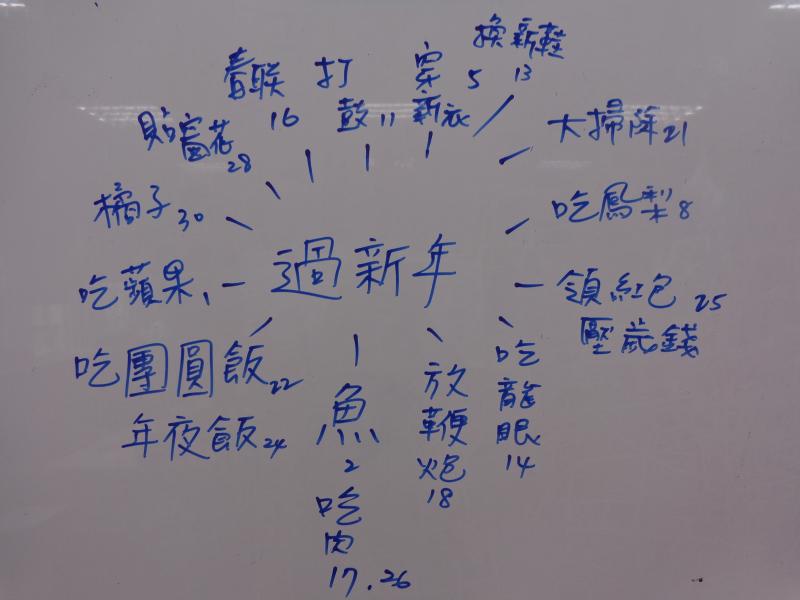 換新鞋 13
春联 16
打鼓 11
穿新衣 5
貼窗花 28
大掃除 21
橘子 30
吃鳳梨 8
吃蘋果 1
過新年
領紅包 25
壓歲錢
吃團圓飯 22
年夜飯 24
魚 2
吃肉 17.26
放鞭炮 18
吃龍眼 14